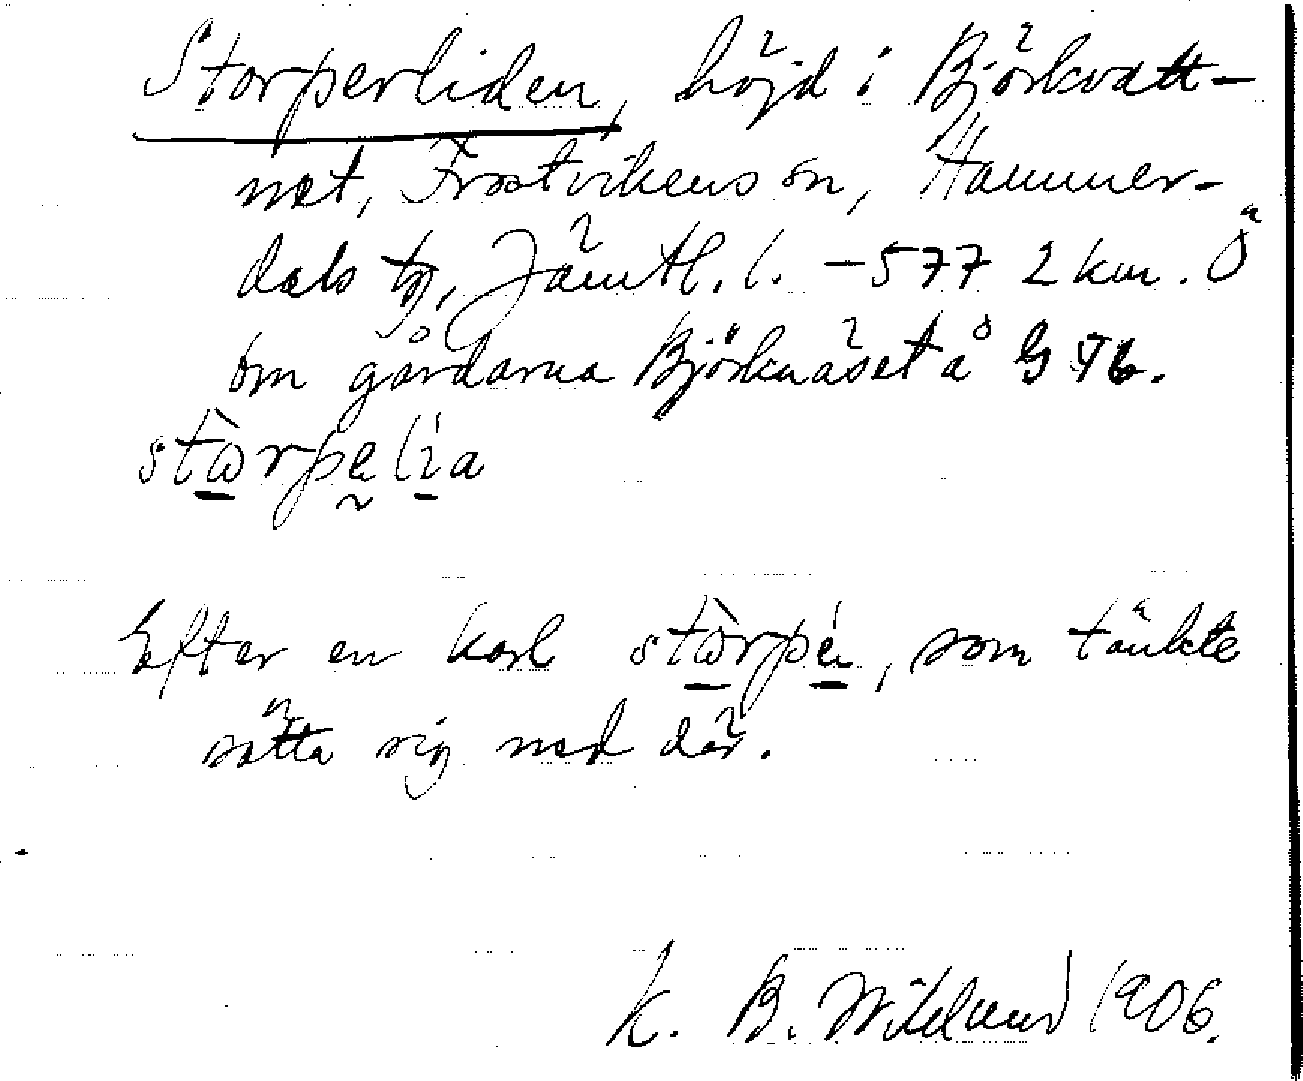 Storperliden, höjd i Björkvatt-
net, Frostvikens sn, Hammer-
dals tg, Jämtl. l. - 577 2 km. Ö
om gårdarna Björknäset å G 56.
stὼrpelía
Efter en karl stὼrpéṛ, som tänkte
sätta sig ned där.
K. B. Wiklund 1906.